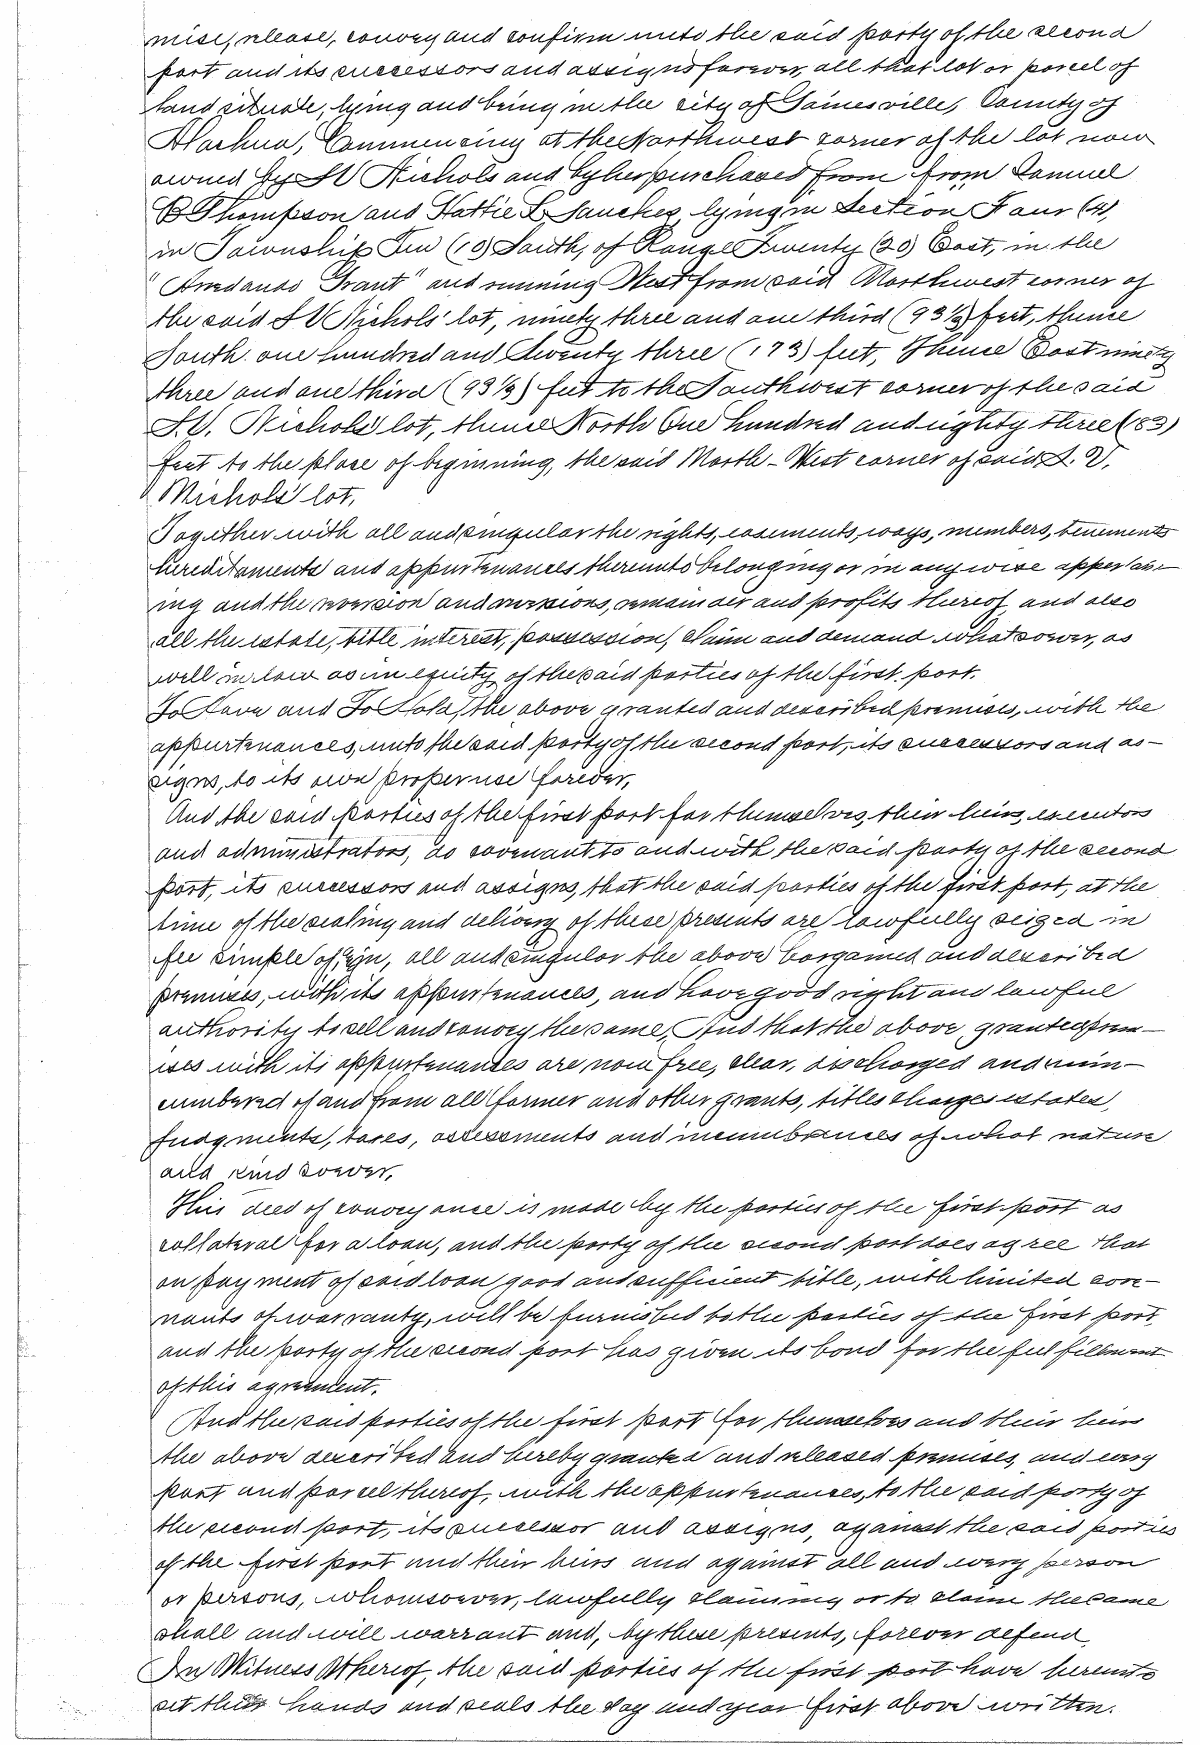 mise, release, convey and confirm unto the said party of the second
part and its successors and assigns forever, all that lot or parcel of
land situate, lying and being in the city of Gainesville, County of
Alachua, Commencing at the Northwest corner of the lot now
owned by S V Nichols and by her purchased from from Samuel
B Thompson and Hattie L Sanchez, lying in Section Four (4),
in Township Ten (10) South, of Range Twenty (20) East, in the
"Arredondo Grant" and running West from said Northwest corner of
the said S V Nichols' lot, ninety three and one third (93 1/3) feet, thence
South one hundred and twenty three (173) feet, Thence East ninety
three and one third (93 1/3) feet to the Southwest corner of the said
S.V. Nichols' lot, thence North One hundred and eighty three (183)
feet to the place of beginning, the said North-West corner of said S. V.
Nichols' lot.
Together with all and singular the rights, easements, ways, members, tenements
hereditaments and appurtenances thereunto belonging or in any wise appertain-
ing and the reversion and reversions, remainder and profits thereof, and also
all the estate, title interest, possession, claim and demand whatsoever, as
well in law as in equity of the said parties of the first part.
To Have and To Hold, the above granted and described premises, with the
appurtenances, unto the said party of the second part, its successors and as-
signs, to its own proper use forever,
And the said parties of the first part for themselves, their heirs, executors
and administrators, do covenant to and with the said party of the second
part, its successors and assigns, that the said parties of the first part, at the
time of the sealing and delivery of these presents are lawfully seized in
fee simple of, in, all and singular the above bargained and described
premises, with its appurtenances, and have good right and lawful
authority to sell and convey the same, And that the above granted prem-
ises with its appurtenances are now free, clear, discharged and unin-
cumbered of and from all former and other grants, titles charges estates,
judgments, taxes, assessments and incumbrances of what nature
and kind soever.
This deed of conveyance is made by the parties of the first part as
collateral for a loan, and the party of the second part does agree that
on payment of said loan good and sufficient title, with limited cove-
nants of warranty, will be furnished to the parties of the first part,
and the party of the second part has given its bond for the fulfillment
of this agreement.
And the said parties of the first part for themselves and their heirs
the above described and hereby granted and released premises, and every
part and parcel thereof, with the appurtenances, to the said party of
the second part, its successor and assigns, against the said parties
of the first part and their heirs and against all and every person
or persons, whomsoever, lawfully claiming or to claim the same
shall and will warrant and, by these presents, forever defend,
In Witness Whereof, the said parties of the first part have hereunto
set their hands and seals the day and year first above written.